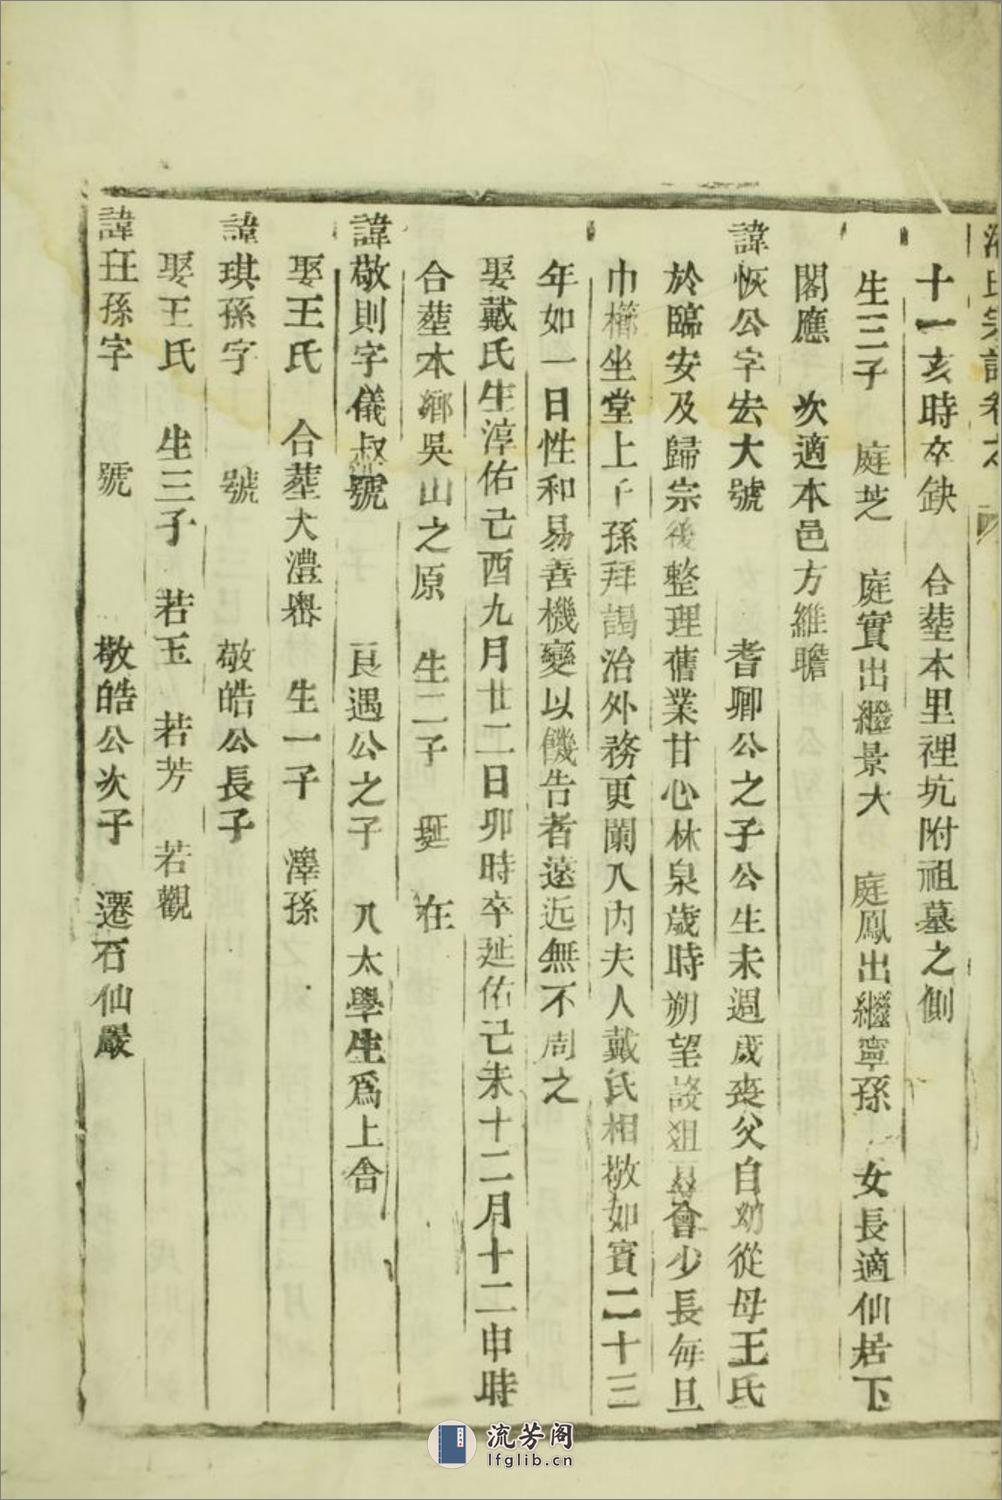 氏宗譜卷之
十一亥時卒缺 合塟本里裡坑附祖墓之側
生三子 庭芝 庭實出繼景大 庭鳳出繼寧孫 女長適仙居下
閣應 次適本邑方維瞻
諱恢公字宏大號 耆卿公之子公生未週歲喪父自幼從母王氏
於臨安及歸宗後整理舊業甘心林泉歲時朔望設俎會少長每旦
巾櫛坐堂上子孫拜謁治外務更闌入內夫人戴氏相敬如賓二十三
年如一日性和易善機變以饑告者遠近無不周之
娶戴氏生淳佑己酉九月廿二日卯時卒延佑己未十二月十二申時
合塟本鄉吳山之原 生二子 珽 在
諱敬則字儀叔號 良遇公之子 入太學生爲上舍
娶王氏 合塟大澧嶴 生一子 澤孫
諱琪孫字 號 敬皓公長子
娶王氏 生三子 若玉 若芳 若觀
諱玨孫字 號 敬皓公次子 遷石仙巖
流芳阁
lfglib.cn